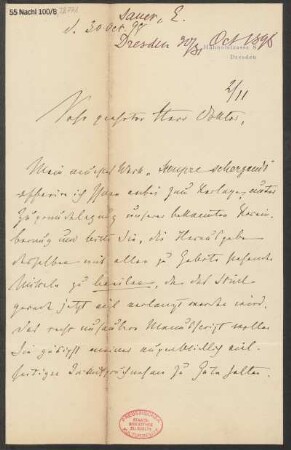 55 Nachl 100/B
Sauer, E.
d. 30 Oct 97
Dresden 30/31 Oct 1896
Dresden
2/11
Sehr geehrter Herr Doktor,
Mein neuestes Werk „Sempre scherzando“
offerire ich Ihnen anbei zum Verlage, unter
Zugrundelegung unserer bekannten Verein-
barung und bitte Sie, die Herausgabe
desselben mit allen zu Gebote stehenden
Mitteln zu beeilen, da das Stück
gerade jetzt viel verlangt werden wird.
Das recht unsaubere Manuscript wollen
Sie gütigst meiner augenblicklich viel-
seitigen zu Gute halten.